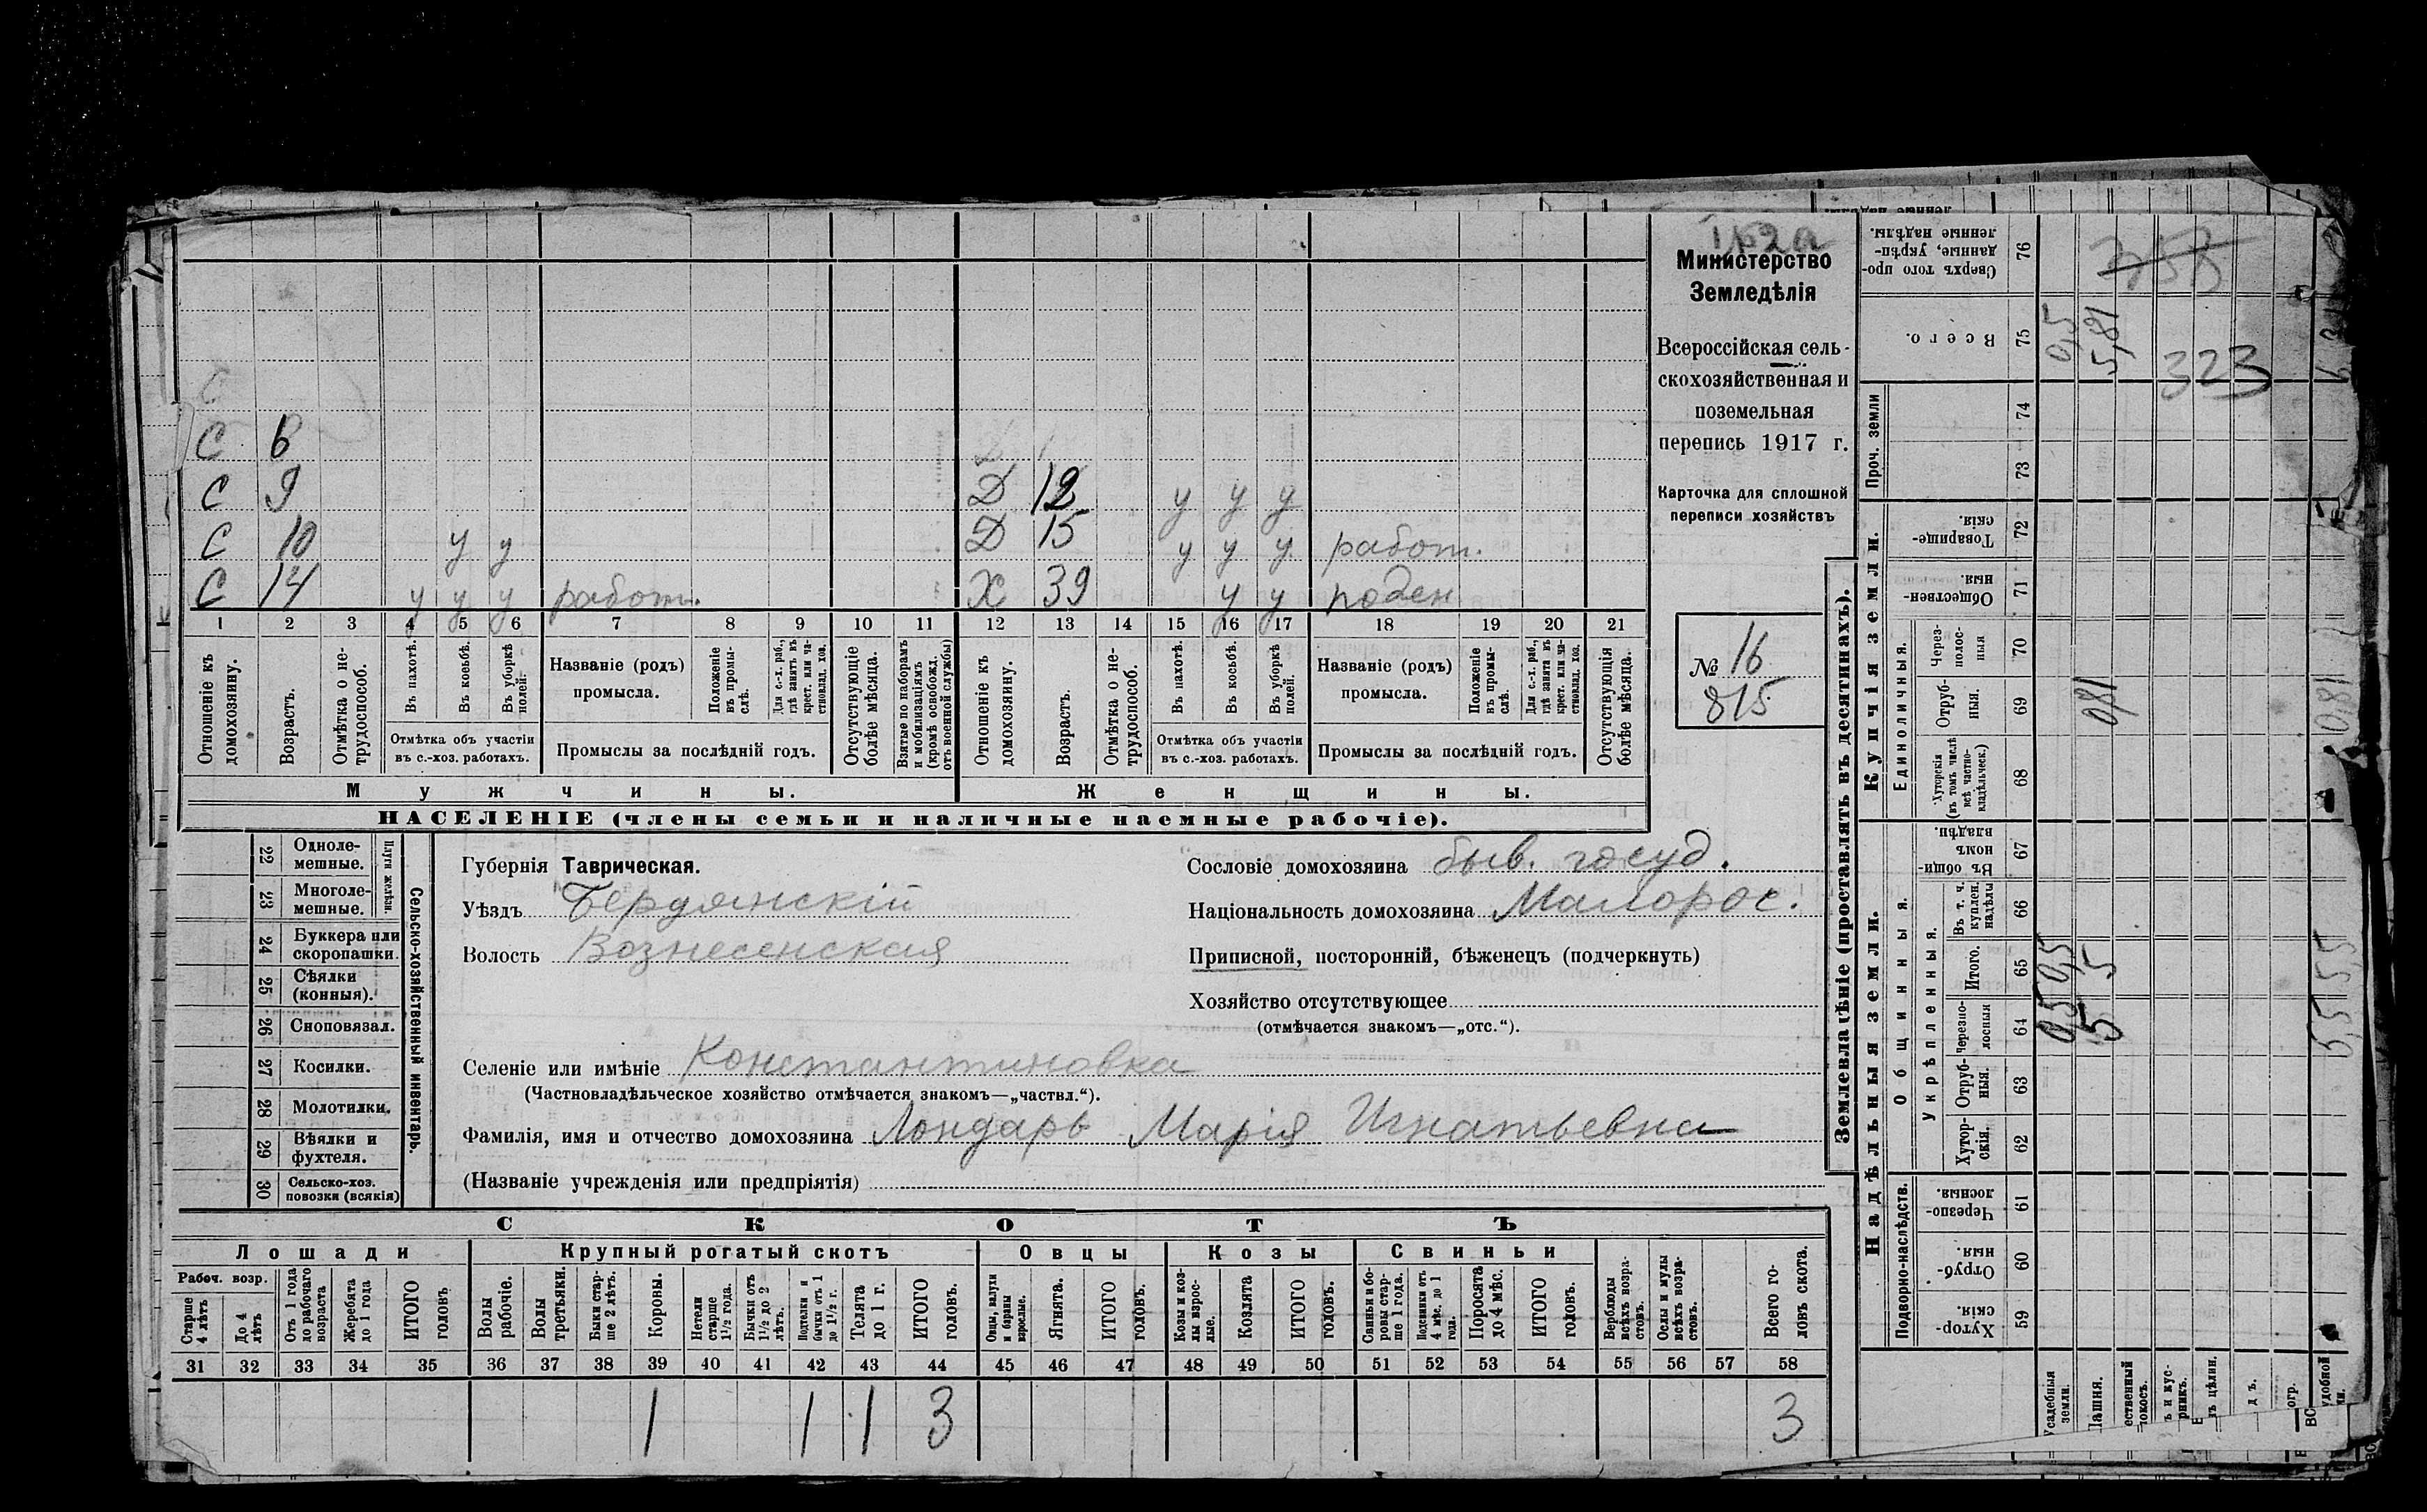 Министерство
Земледѣлія
Всероссійская сель-
скохозяйственная и
поземельная
перепись 1917 г.
Карточка для сплошной
переписи хозяйствъ
№ 16
815
С 6
С 9 Д 12 у у у
С 10 у у Д 15 у у у работ.
С 14 у у у работ. Х 39 у у
1 2 3 4 5 6 7 8 9 10 11 12 13 14 15 16 17 18 19 20 21
Отношеніе къ домохозяину.
Возрастъ.
Отмѣтка о не-трудоспособ.
Въ пахотѣ.
Въ косьбѣ.
Въ уборкѣ полей.
Отмѣтка объ участіи
въ с.-хоз. работахъ.
Названіе (родъ)
промысла.
Положеніе въ промы-слѣ.
Для с.-х. раб., гдѣ занятъ въ крест. или ча-стновлад. хоз.
Промыслы за послѣдній годъ.
Отсутствующіе болѣе мѣсяца.
Взятые по наборамъ и мобилизаціямъ (кромѣ освобожд. отъ военной службы)
Отношеніе къ домохозяину.
Возрастъ.
Отмѣтка о не-трудоспособ.
Въ пахотѣ.
Въ косьбѣ.
Въ уборкѣ полей.
Отмѣтка объ участіи
въ с.-хоз. работахъ.
Названіе (родъ)
промысла.
Положеніе въ промы-слѣ.
Для с.-х. раб., гдѣ занята въ крест. или ча-стновлад. хоз.
Промыслы за послѣдній годъ.
Отсутствующія болѣе мѣсяца.
Мужчины.
Женщины.
НАСЕЛЕНІЕ (члены семьи и наличные наемные рабочіе).
22 Одноле-мешные.
23 Многоле-мешные.
Плуги желѣзн.
24 Буккера или скоропашки.
25 Сѣялки (конныя).
26 Сноповязал.
27 Косилки.
28 Молотилки.
29 Вѣялки и фухтеля.
30 Сельско-хоз. повозки (всякія)
Сельско-хозяйственный инвентарь.
Губернія Таврическая.
Уѣздъ Бердянскій
Волость Вознесенская
Сословіе домохозяина быв. госуд.
Національность домохозяина Малорос.
Приписной, посторонній, бѣженецъ (подчеркнуть)
Хозяйство отсутствующее
(отмѣчается знакомъ—„отс.“).
Селеніе или имѣніе Константиновка
(Частновладѣльческое хозяйство отмѣчается знакомъ—„частвл.“).
Фамилія, имя и отчество домохозяина Лондарь Марія Игнатьевна
(Названіе учрежденія или предпріятія)
СКОТЪ
Лошади
Крупный рогатый скотъ
Овцы
Козы
Свиньи
Рабоч. возр.
Старше 4 лѣтъ
До 4 лѣтъ
Отъ 1 года до рабочаго возраста
Жеребята до 1 года
ИТОГО головъ
Волы рабочіе.
Волы третьяки.
Быки стар-ше 2 лѣтъ.
Коровы.
Нетели старше 1½ года.
Бычки отъ 1½ до 2 лѣтъ.
Подтелки и бычки отъ 1 до 1½ г.
Телята до 1 г.
ИТОГО головъ.
Овцы, валухи и бараны взрослые.
Ягнята.
ИТОГО головъ.
Козы и коз-лы взрос-лые.
Козлята
ИТОГО головъ.
Свиньи и бо-ровы стар-ше 1 года.
Подсвинки отъ 4 мѣс. до 1 года.
Поросята до 4 мѣс.
ИТОГО головъ.
Верблюды всѣхъ возра-стовъ.
Ослы и мулы всѣхъ возра-стовъ.
Всего го-ловъ скота.
31 32 33 34 35 36 37 38 39 40 41 42 43 44 45 46 47 48 49 50 51 52 53 54 55 56 57 58
1 1 1 3 3
Землевладѣніе (проставлять въ десятинахъ).
Надѣльныя земли.
Купчія земли.
Проч. земли
Подворно-наслѣдств.
Общинныя.
Укрѣпленныя.
Единоличныя.
Хутор-скія. 59
Отруб-ныя. 60
Черезпо-лосныя. 61
Хутор-скія. 62
Отруб-ныя. 63
Черезпо-лосныя 64
Итого. 65
Въ т. ч. куплен. надѣлы 66
Въ общи-номъ владѣн. 67
Хуторскія (въ томъ числѣ всѣ частно-владѣльческ.) 68
Отруб-ныя. 69
Через-полос-ныя 70
Обществен-ныя. 71
Товарище-скія. 72
73
74
Всего. 75
Сверхъ того про-данные, укрѣп-ленные надѣлы. 76
0,5 0,5 0,5
5 5 0,81 5,81
323
758